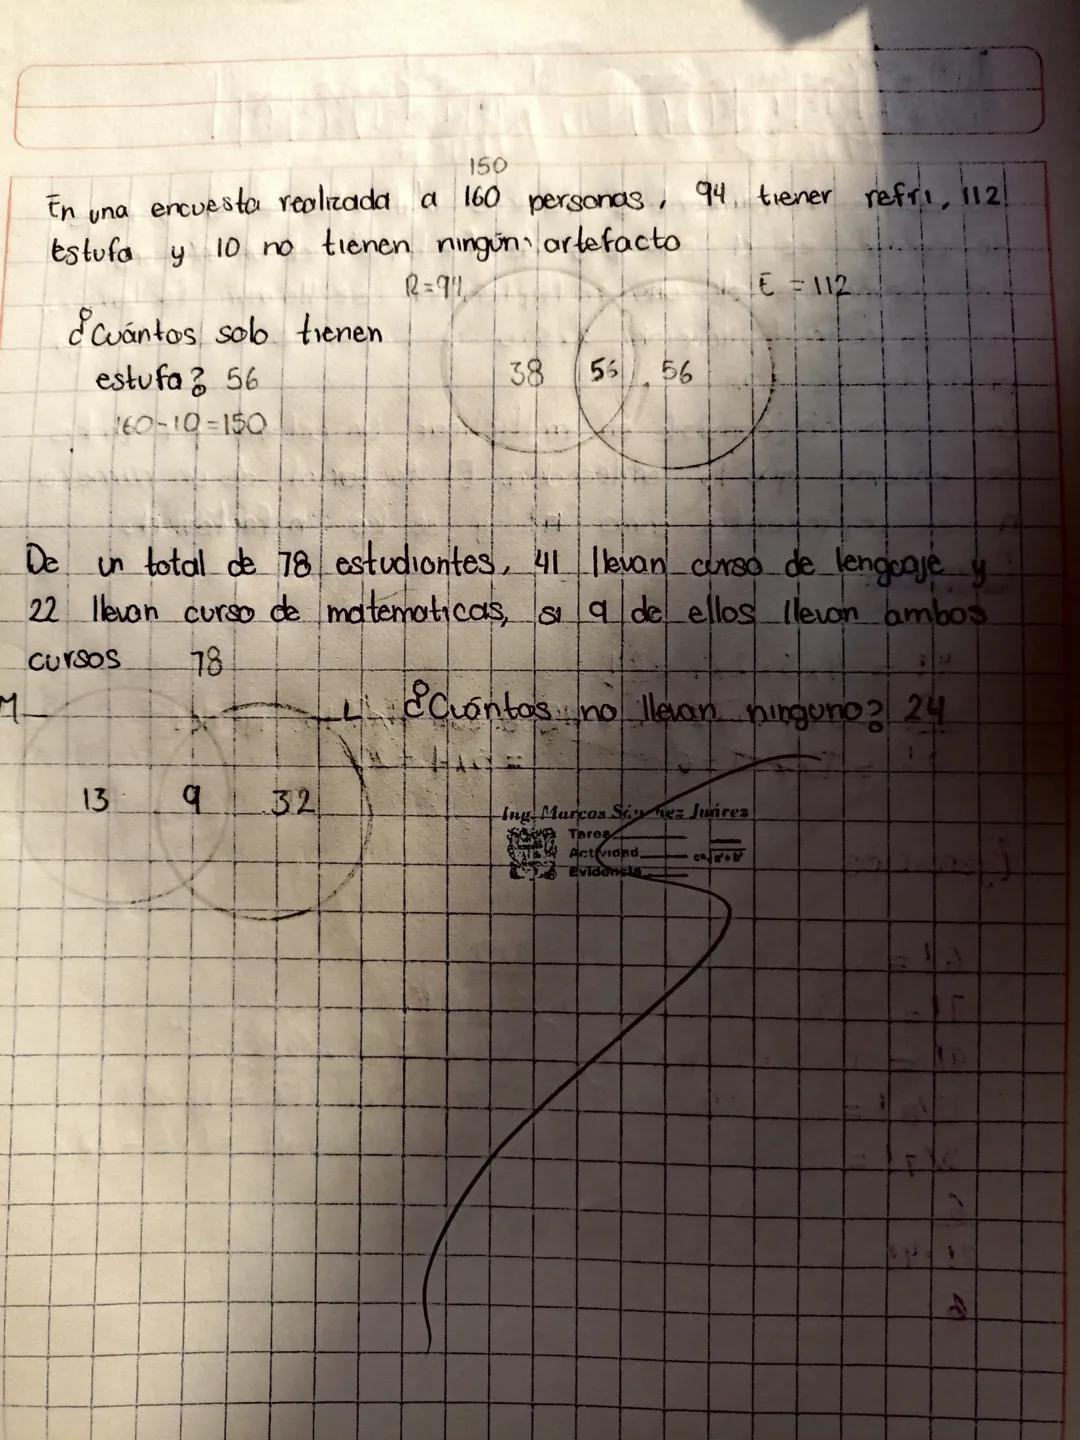 150
En una encuesta realizada a 160 personas, 94 tiener refri, 112
Estufa y 10 no tienen ningún artefacto
R=94 E = 112
¿Cuántos solo tienen
estufa? 56
38 56 56
160-10=150
De un total de 78 estudiantes, 41 llevan curso de lenguaje y
22 llevan curso de matematicas, si 9 de ellos llevan ambos
cursos 78
M L ¿Cuántos no llevan ninguno? 24
13 9 32
Ing. Marcos Sánchez Juárez
Tarea
Actividad
Evidencia